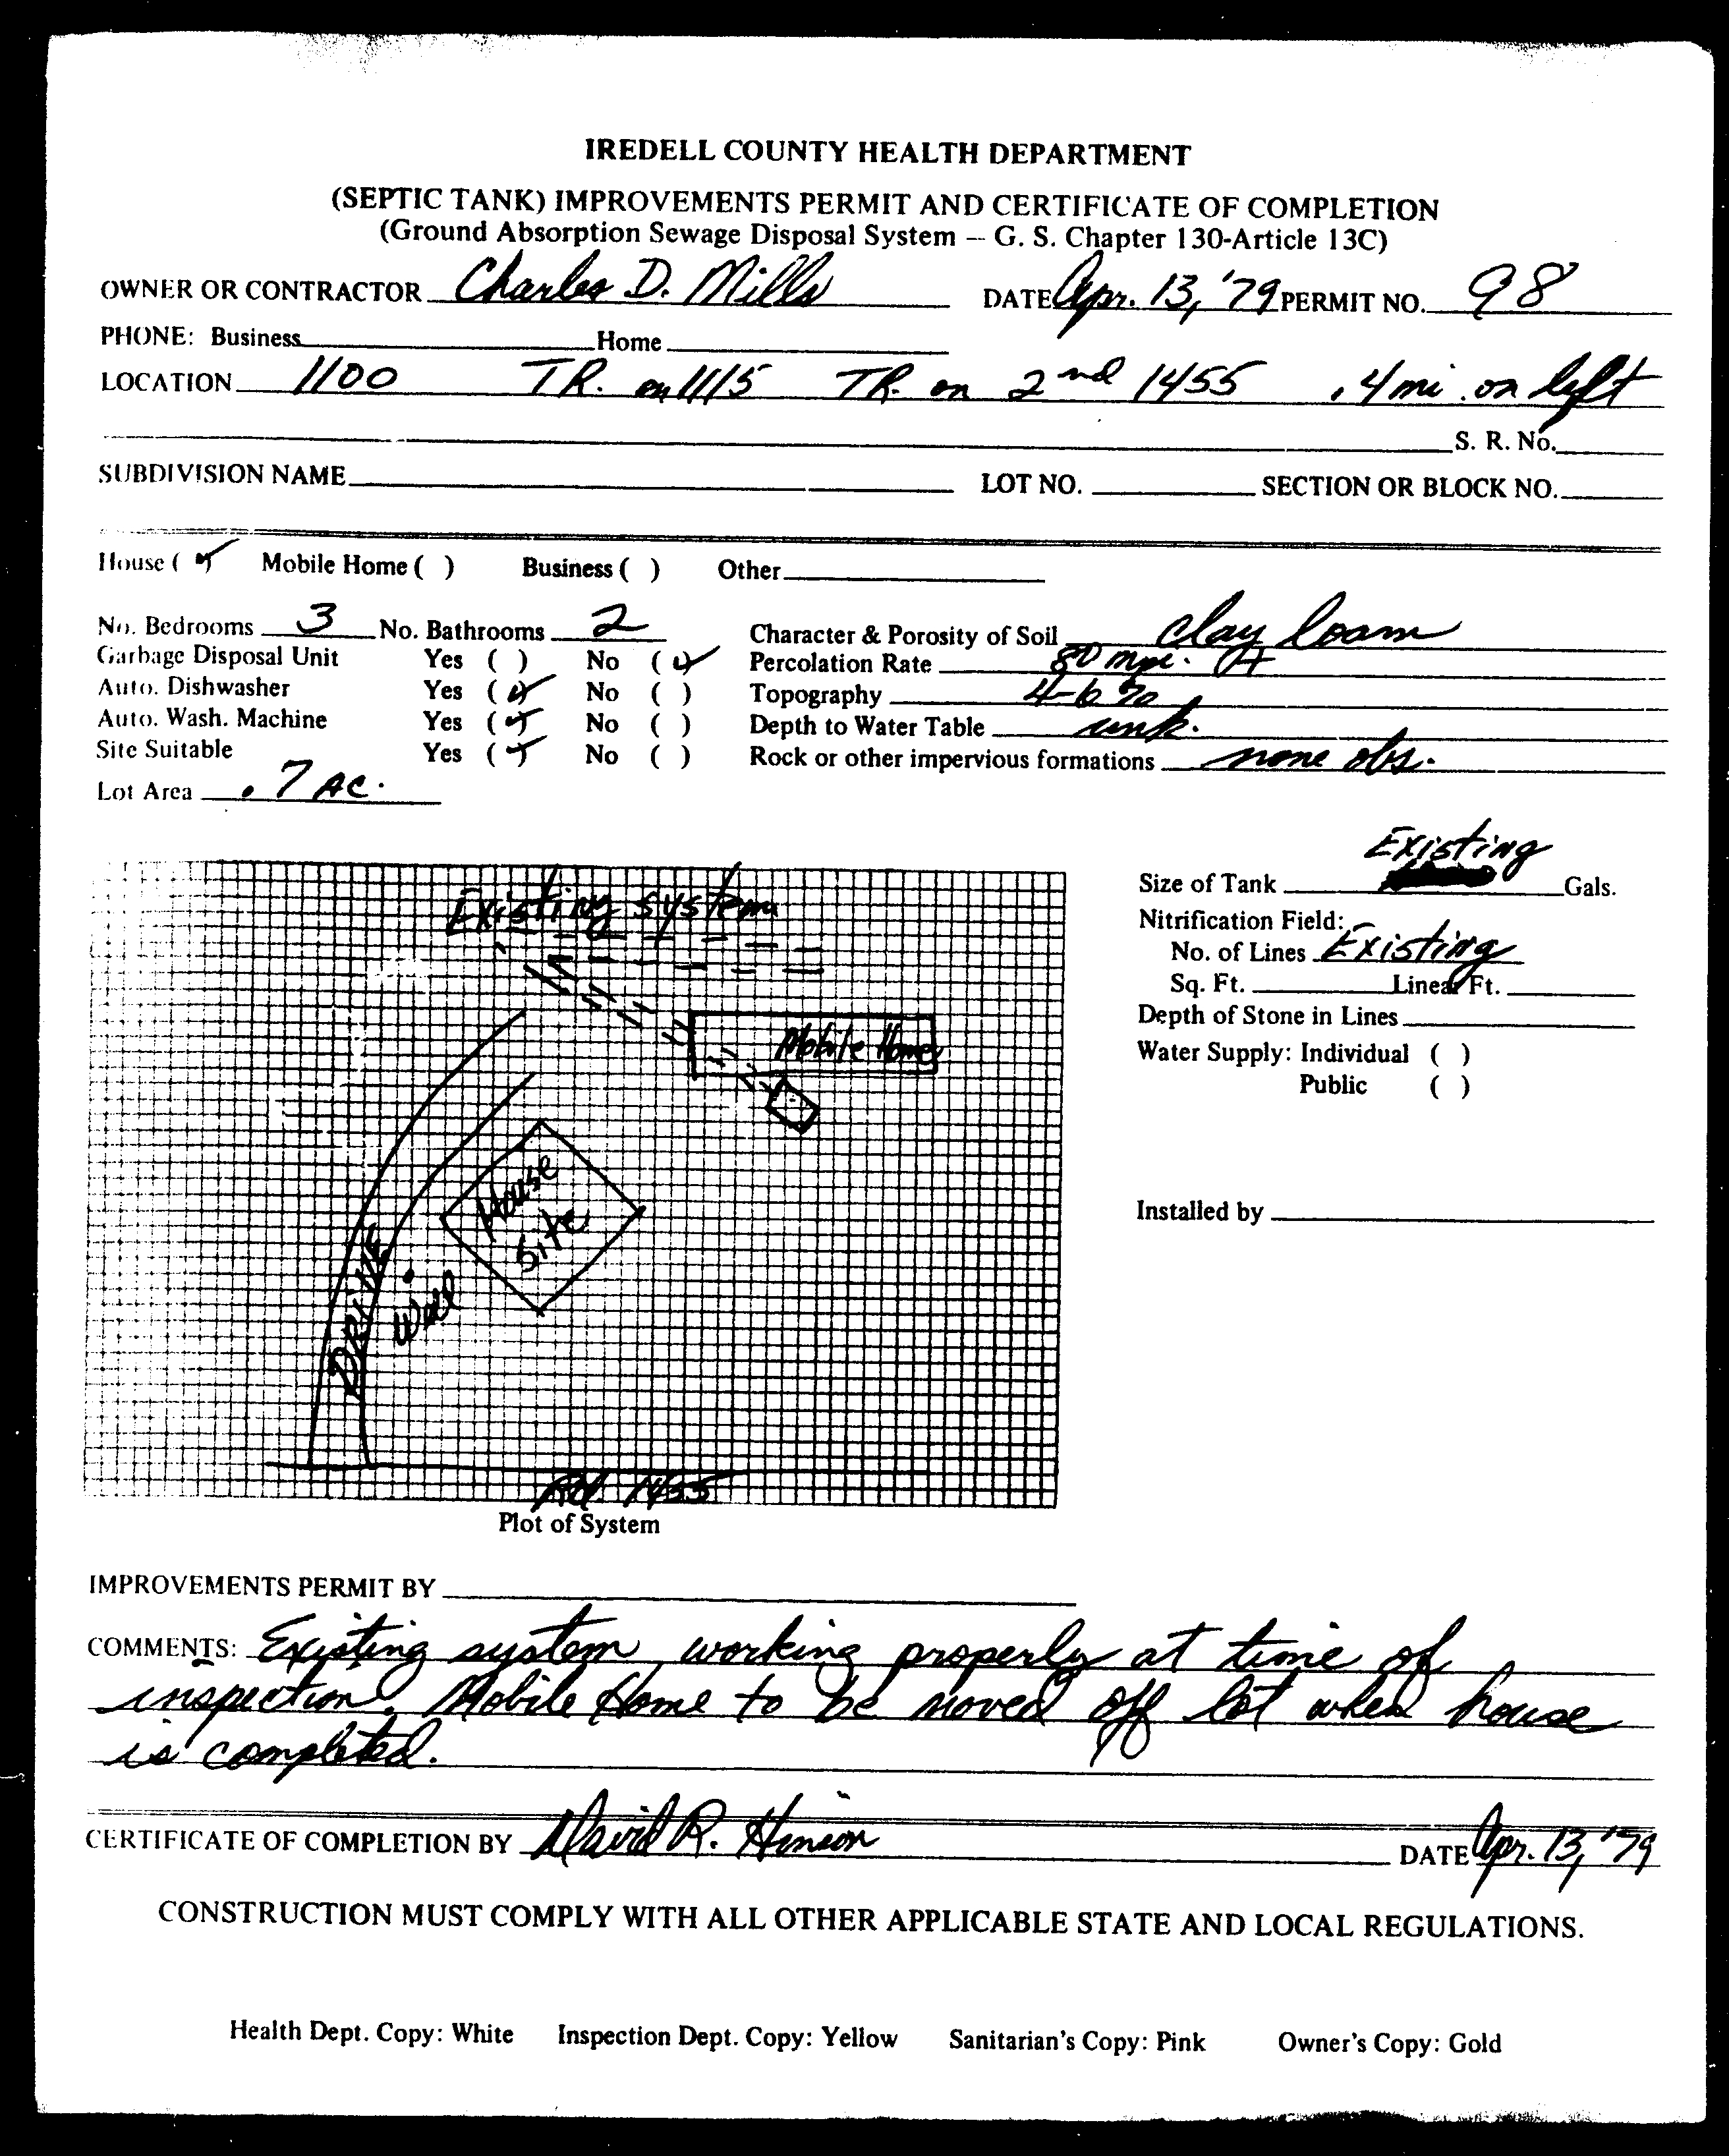 IREDELL COUNTY HEALTH DEPARTMENT
(SEPTIC TANK) IMPROVEMENTS PERMIT AND CERTIFICATE OF COMPLETION
(Ground Absorption Sewage Disposal System — G. S. Chapter 130-Article 13C)
OWNER OR CONTRACTOR Charles D. Mills DATE Apr. 13, '79 PERMIT NO. 98
PHONE: Business Home
LOCATION 1100 TR. on 1115 TR. on 2nd 1455 .4 mi. on left
S. R. No.
SUBDIVISION NAME LOT NO. SECTION OR BLOCK NO.
House (✓) Mobile Home ( ) Business ( ) Other
No. Bedrooms 3 No. Bathrooms 2 Character & Porosity of Soil clay loam
Garbage Disposal Unit Yes ( ) No (✓) Percolation Rate 80 mpi.
Auto. Dishwasher Yes (✓) No ( ) Topography 4-6 %
Auto. Wash. Machine Yes (✓) No ( ) Depth to Water Table unk.
Site Suitable Yes (✓) No ( ) Rock or other impervious formations none obs.
Lot Area .7 AC.
Existing
Size of Tank Gals.
Nitrification Field:
No. of Lines Existing
Sq. Ft. Linear Ft.
Depth of Stone in Lines
Water Supply: Individual ( )
Public ( )
Installed by
Existing system
Mobile Home
House
Site
DRIVE
Well
Rd 1455
Plot of System
IMPROVEMENTS PERMIT BY
COMMENTS: Existing system working properly at time of
inspection. Mobile Home to be moved off lot when house
is completed.
CERTIFICATE OF COMPLETION BY David R. Hinson DATE Apr. 13, '79
CONSTRUCTION MUST COMPLY WITH ALL OTHER APPLICABLE STATE AND LOCAL REGULATIONS.
Health Dept. Copy: White Inspection Dept. Copy: Yellow Sanitarian's Copy: Pink Owner's Copy: Gold